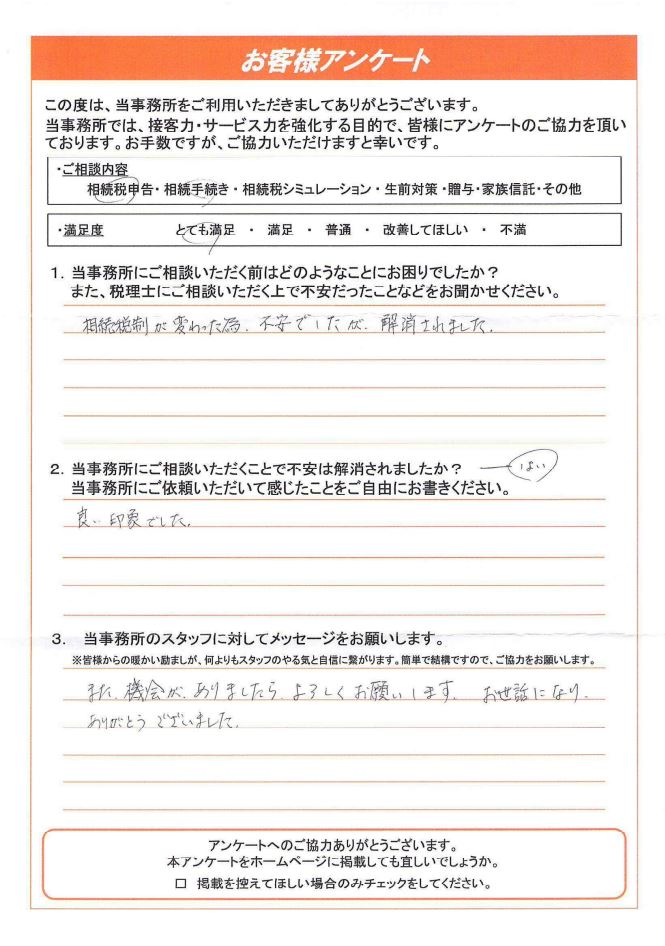 お客様アンケート
この度は、当事務所をご利用いただきましてありがとうございます。
当事務所では、接客力・サービス力を強化する目的で、皆様にアンケートのご協力を頂い
ております。お手数ですが、ご協力いただけますと幸いです。
・ご相談内容
相続税申告・相続手続き・相続税シミュレーション・生前対策・贈与・家族信託・その他
・満足度 とても満足 ・ 満足 ・ 普通 ・ 改善してほしい ・ 不満
1. 当事務所にご相談いただく前はどのようなことにお困りでしたか？
また、税理士にご相談いただく上で不安だったことなどをお聞かせください。
相続税制が変わった為、不安でしたが、解消されました。
2. 当事務所にご相談いただくことで不安は解消されましたか？ はい
当事務所にご依頼いただいて感じたことをご自由にお書きください。
良い印象でした。
3. 当事務所のスタッフに対してメッセージをお願いします。
※皆様からの暖かい励ましが、何よりもスタッフのやる気と自信に繋がります。簡単で結構ですので、ご協力をお願いします。
また、機会が、ありましたら、よろしくお願いします。 お世話になり、
ありがとうございました。
アンケートへのご協力ありがとうございます。
本アンケートをホームページに掲載しても宜しいでしょうか。
□ 掲載を控えてほしい場合のみチェックをしてください。